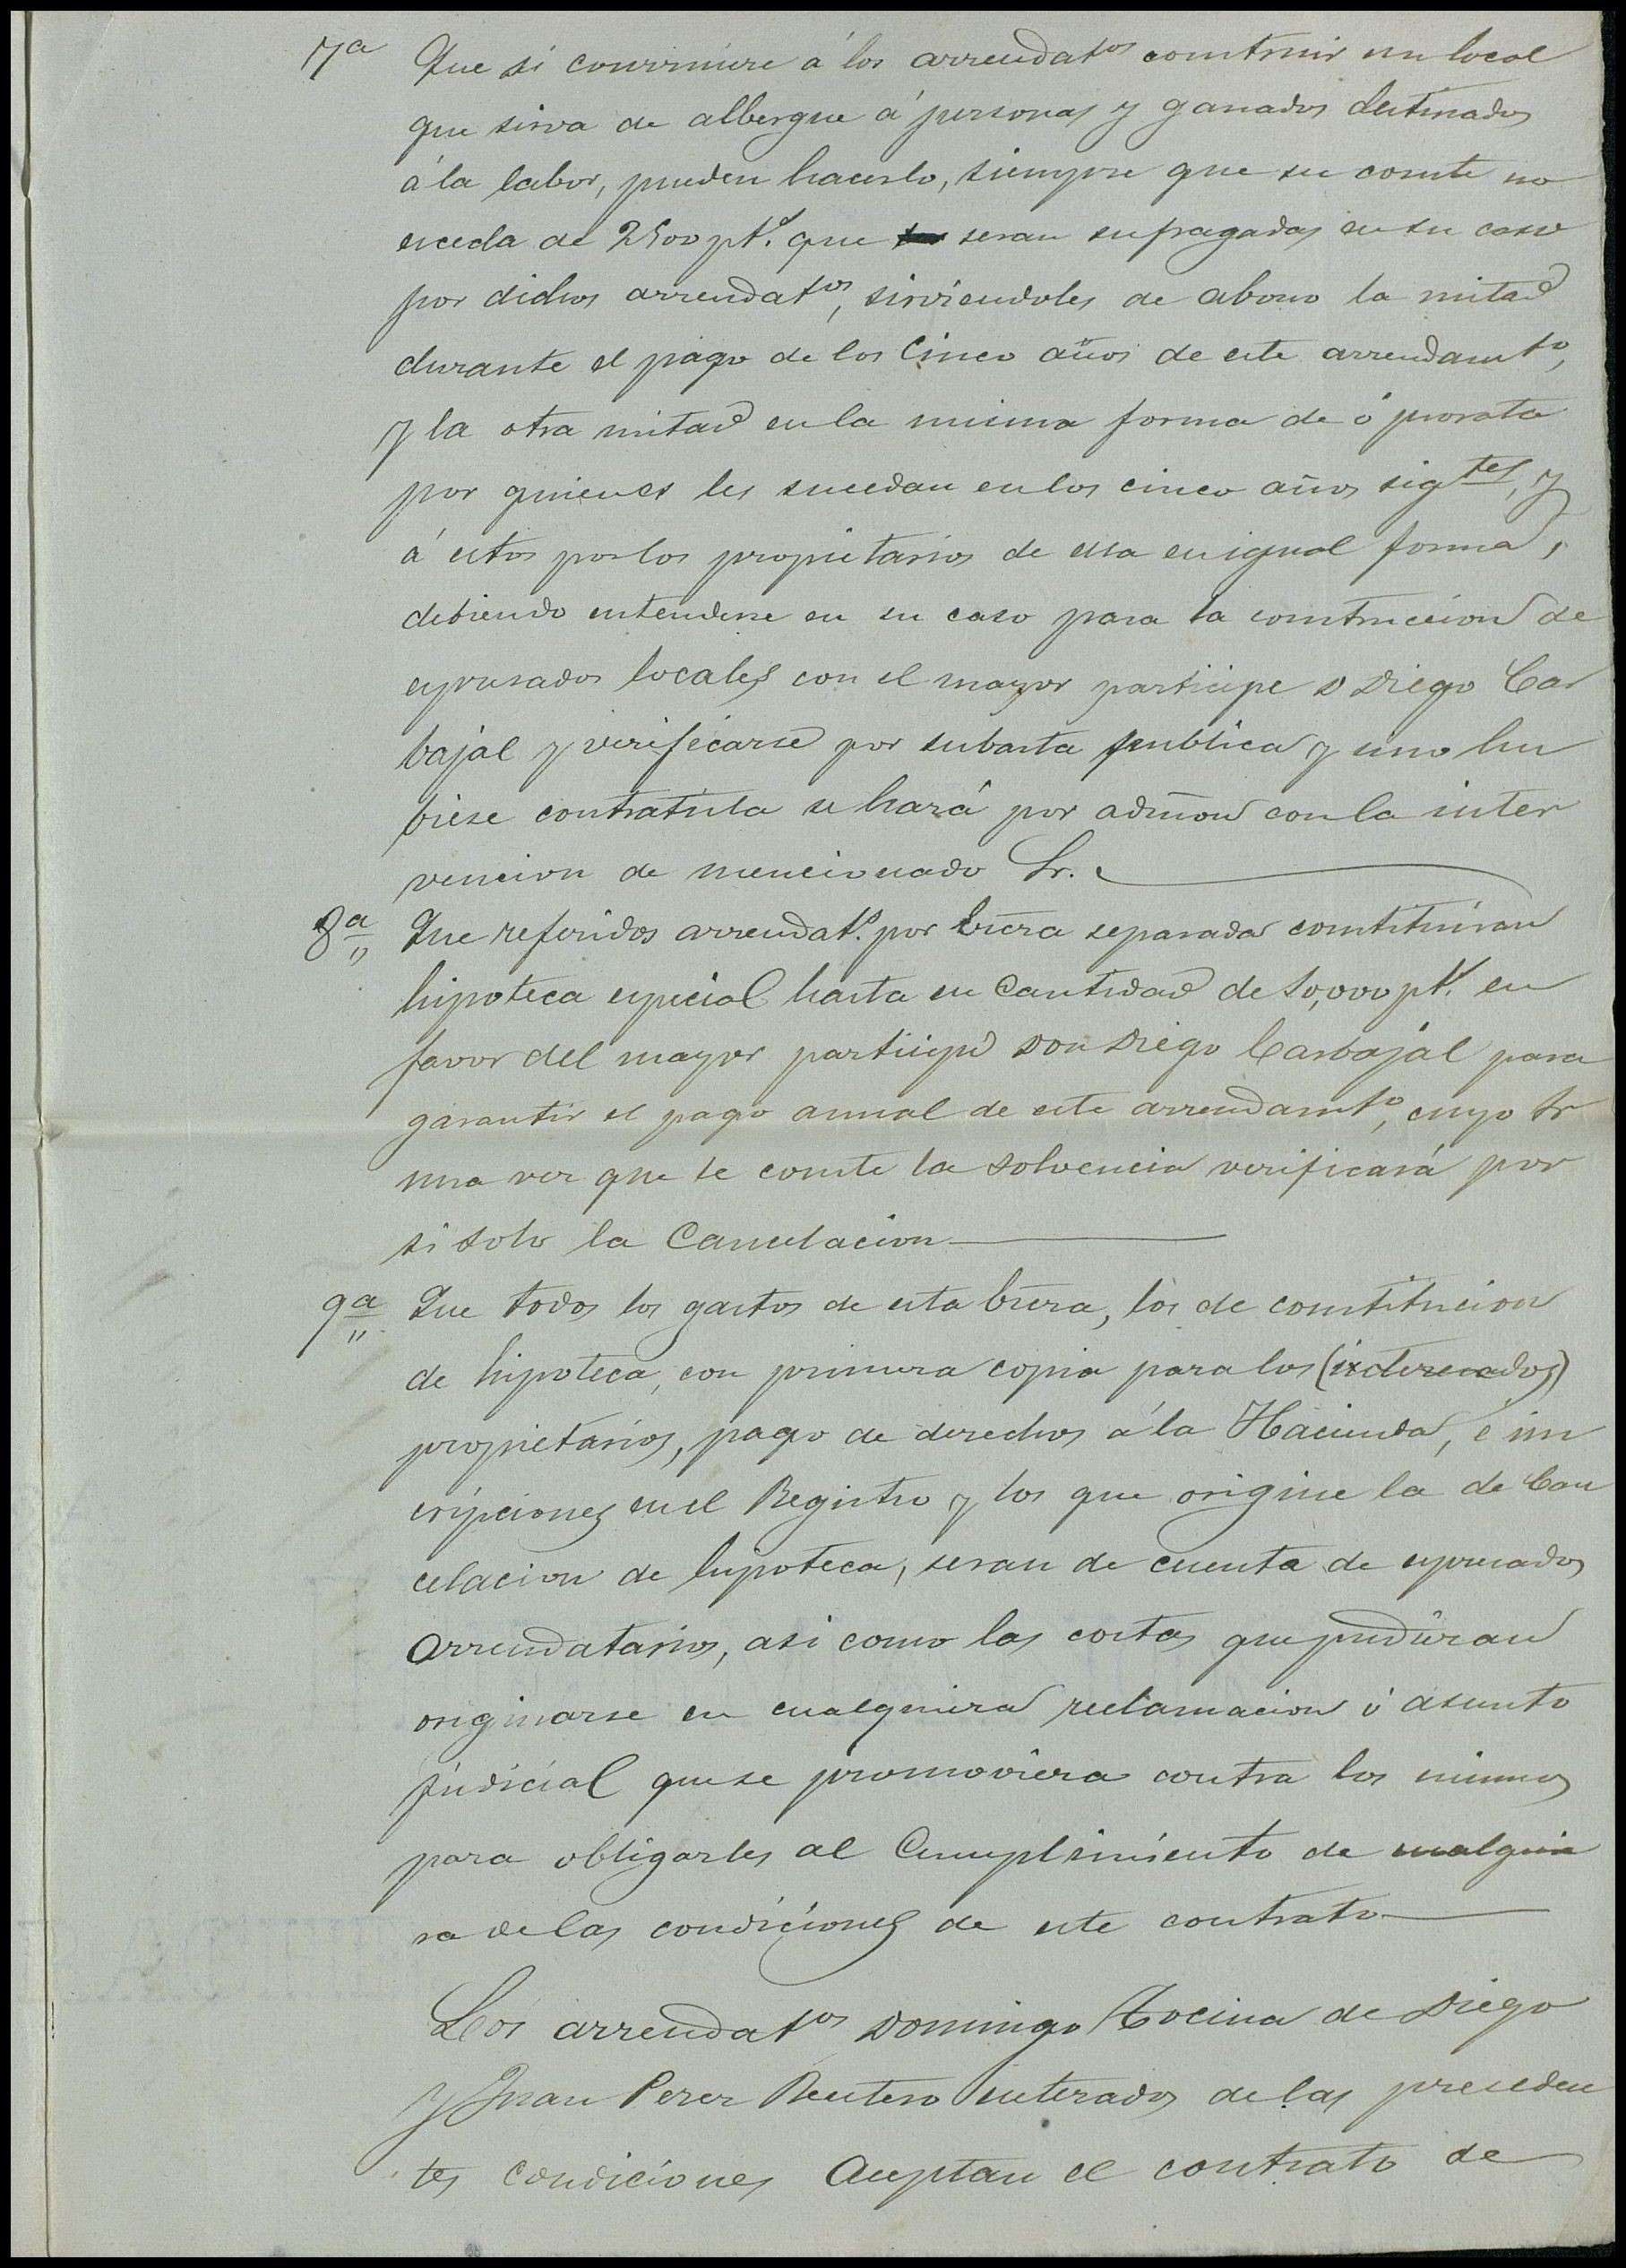 7ª Que si conviniere á los arrendatos construir un local
que sirva de albergue á personas y ganados destinados
á la labor, pueden hacerlo, siempre que su conste no
exceda de 2500 pts. que seran sufragadas en su caso
por dichos arrendatos, sirviendoles de abono la mitad
durante el pago de los Cinco años de este arrendamto,
y la otra mitad en la misma forma de ó prorata
por quienes les sucedan en los cinco años sigtes, y
á estos por los propietarios de ella en igual forma,
debiendo entenderse en su caso para la construccion de
espresados locales con el mayor participe D Diego Car
bajal y verificarse por subasta publica y sino hu
biese contratista se hará por admon con la inter
vencion de mencionado Sr.
8ª Que referidos arrendatos. por Escra separada constituiran
hipoteca especial hasta en Cantidad de 10,000 pts. en
favor del mayor participe Don Diego Carbajal para
garantir el pago anual de este arrendamto, cuyo Sr
una vez que le conste la solvencia verificará por
si solo la Cancelacion
9ª Que todos los gastos de esta Escra, los de constitucion
de hipoteca, con primera copia para los (interesados)
propietarios, pago de derechos á la Hacienda, é ins
cripciones en el Registro y los que origine la de Can
celacion de hipoteca, seran de cuenta de espresados
Arrendatarios, asi como las costas que pudieran
originarse en cualquiera reclamacion ó asunto
judicial que se promoviera contra los mismos
para obligarles al Cumplimiento de cualquie
ra de las condiciones de este contrato
Los arrendatos Domingo Tocina de Diego
y Juan Perez Rentero enterados de las preceden
tes condiciones Aceptan el contrato de